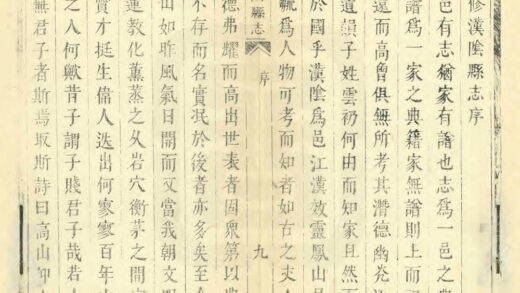 修漢陰縣志序
邑有志猶家有譜也志爲一邑之典
譜爲一家之典籍家無譜則上而
遠而高曾俱無所考其潛德幽光
遺韻子姓雲礽何由而知家且然
於國乎漢陰爲邑江漢效靈鳳山
毓爲人物可考而知者如古之丈人
縣志
序
九
德弗耀而高出世表者固衆第以典
不存而名實泯於後者亦多矣至
山如昨風氣日開而文當我朝文
運教化薰蒸之久岩穴衡茅之間
實才挺生偉人迭出何寥寥百年
之人何歟昔子謂子賤君子哉若人
無君子者斯焉取斯詩曰高山仰